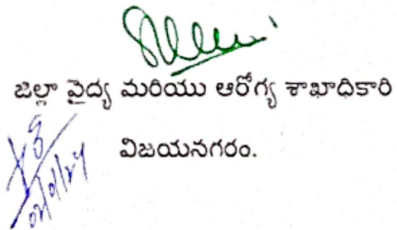 జిల్లా వైద్య మరియు ఆరోగ్య శాఖాధికారి
విజయనగరం.